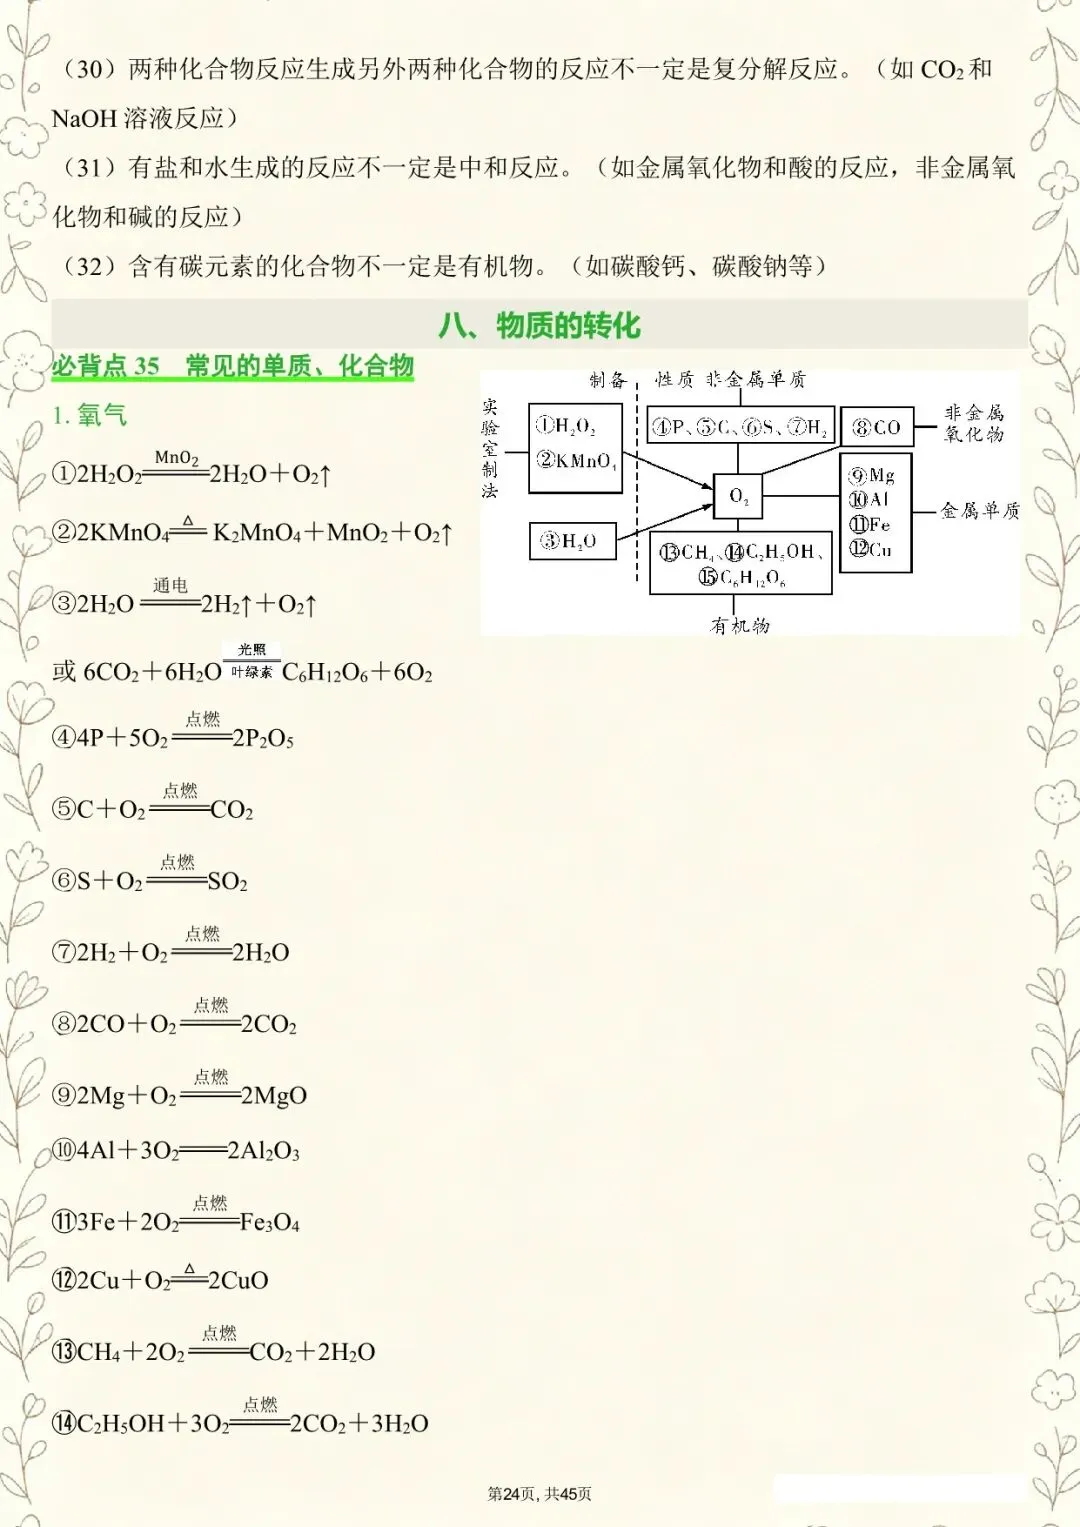 （30）两种化合物反应生成另外两种化合物的反应不一定是复分解反应。（如 CO₂和
NaOH 溶液反应）
（31）有盐和水生成的反应不一定是中和反应。（如金属氧化物和酸的反应，非金属氧
化物和碱的反应）
（32）含有碳元素的化合物不一定是有机物。（如碳酸钙、碳酸钠等）
八、物质的转化
必背点 35 常见的单质、化合物
1. 氧气
制备 性质 非金属单质
实验室制法
①H₂O₂
②KMnO₄
③H₂O
④P、⑤C、⑥S、⑦H₂
⑧CO
非金属
氧化物
O₂
⑨Mg
⑩Al
⑪Fe
⑫Cu
金属单质
⑬CH₄、⑭C₂H₅OH、
⑮C₆H₁₂O₆
有机物
MnO₂
①2H₂O₂═══2H₂O＋O₂↑
△
②2KMnO₄═══ K₂MnO₄＋MnO₂＋O₂↑
通电
③2H₂O ═══2H₂↑＋O₂↑
光照
或 6CO₂＋6H₂O═══C₆H₁₂O₆＋6O₂
叶绿素
点燃
④4P＋5O₂═══2P₂O₅
点燃
⑤C＋O₂═══CO₂
点燃
⑥S＋O₂═══SO₂
点燃
⑦2H₂＋O₂═══2H₂O
点燃
⑧2CO＋O₂═══2CO₂
点燃
⑨2Mg＋O₂═══2MgO
⑩4Al＋3O₂═══2Al₂O₃
点燃
⑪3Fe＋2O₂═══Fe₃O₄
△
⑫2Cu＋O₂═══2CuO
点燃
⑬CH₄＋2O₂═══CO₂＋2H₂O
点燃
⑭C₂H₅OH＋3O₂═══2CO₂＋3H₂O
第24页, 共45页